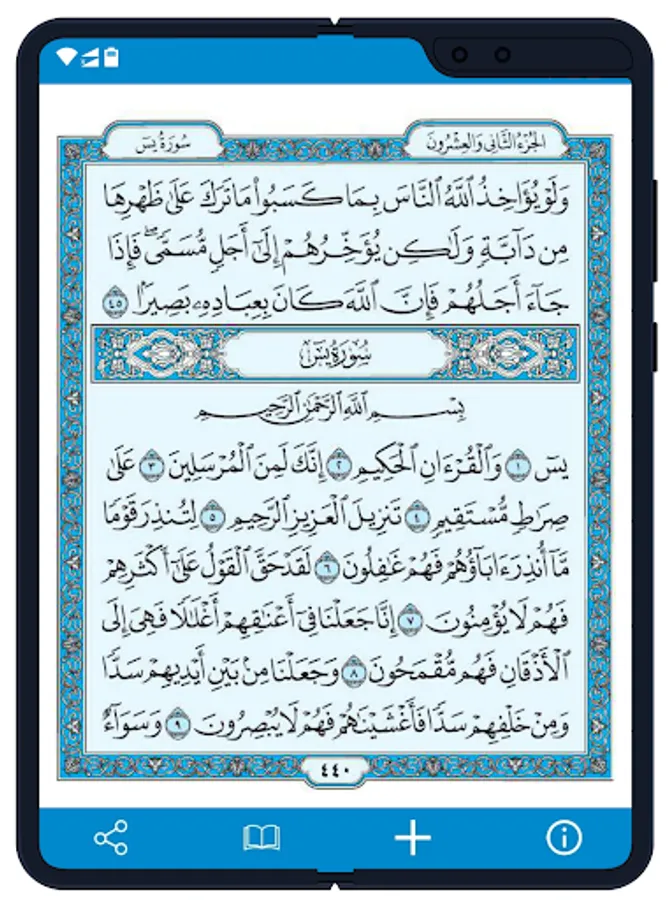 الجُزْءُ الثَّانِي وَالعِشْرُونَ
سُورَةُ يسٓ
وَلَوْ يُؤَاخِذُ ٱللَّهُ ٱلنَّاسَ بِمَا كَسَبُوا۟ مَا تَرَكَ عَلَىٰ ظَهْرِهَا
مِن دَآبَّةٍ وَلَٰكِن يُؤَخِّرُهُمْ إِلَىٰٓ أَجَلٍ مُّسَمًّى ۖ فَإِذَا
جَآءَ أَجَلُهُمْ فَإِنَّ ٱللَّهَ كَانَ بِعِبَادِهِۦ بَصِيرًۢا ٤٥
سُورَةُ يسٓ
بِسْمِ ٱللَّهِ ٱلرَّحْمَٰنِ ٱلرَّحِيمِ
يسٓ ١ وَٱلْقُرْءَانِ ٱلْحَكِيمِ ٢ إِنَّكَ لَمِنَ ٱلْمُرْسَلِينَ ٣ عَلَىٰ
صِرَٰطٍ مُّسْتَقِيمٍ ٤ تَنزِيلَ ٱلْعَزِيزِ ٱلرَّحِيمِ ٥ لِتُنذِرَ قَوْمًا
مَّآ أُنذِرَ ءَابَآؤُهُمْ فَهُمْ غَٰفِلُونَ ٦ لَقَدْ حَقَّ ٱلْقَوْلُ عَلَىٰٓ أَكْثَرِهِمْ
فَهُمْ لَا يُؤْمِنُونَ ٧ إِنَّا جَعَلْنَا فِىٓ أَعْنَٰقِهِمْ أَغْلَٰلًا فَهِىَ إِلَى
ٱلْأَذْقَانِ فَهُم مُّقْمَحُونَ ٨ وَجَعَلْنَا مِنۢ بَيْنِ أَيْدِيهِمْ سَدًّا
وَمِنْ خَلْفِهِمْ سَدًّا فَأَغْشَيْنَٰهُمْ فَهُمْ لَا يُبْصِرُونَ ٩ وَسَوَآءٌ
٤٤٠